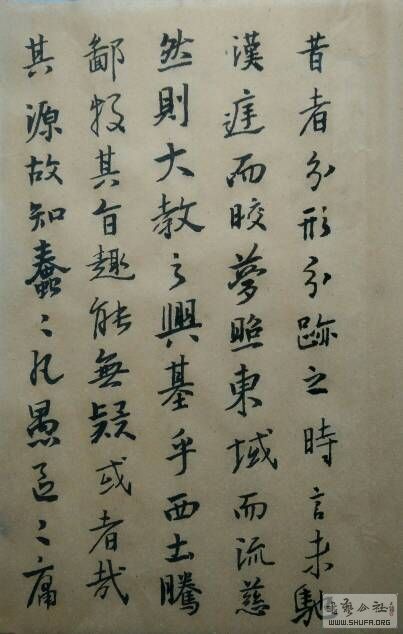 其源故知蠢〻凡愚區〻庸
鄙投其旨趣能無疑或者哉
然則大教之興基乎西土騰
漢庭而晈夢照東域而流慈
昔者分形分跡之時言未馳
書藝公社
WWW.SHUFA.ORG